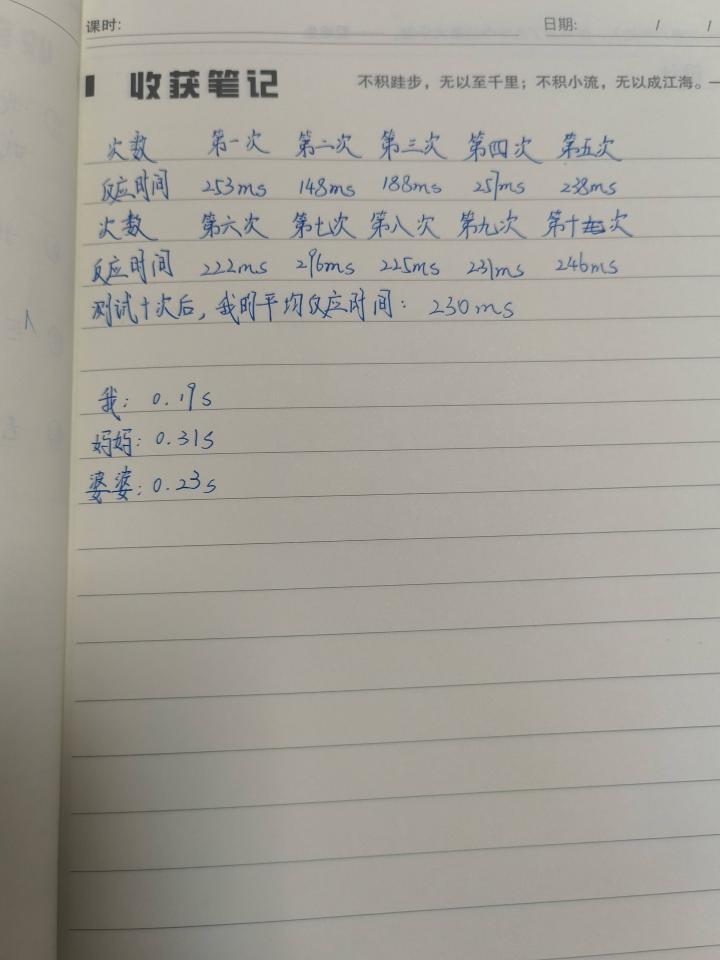 课时: 日期: / /
收获笔记 不积跬步，无以至千里；不积小流，无以成江海。一
次数 第一次 第二次 第三次 第四次 第五次
反应时间 253ms 148ms 188ms 257ms 238ms
次数 第六次 第七次 第八次 第九次 第十次
反应时间 222ms 296ms 225ms 231ms 246ms
测试十次后，我的平均反应时间：230ms
我：0.19s
妈妈：0.31s
婆婆：0.23s